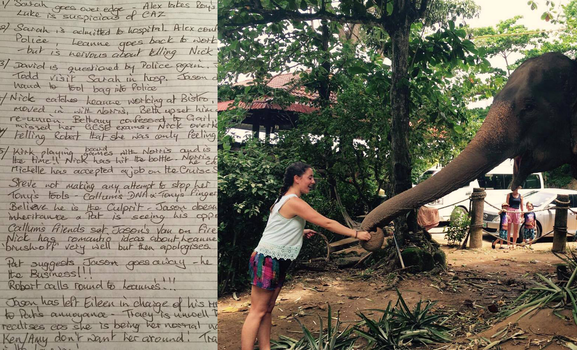 1/ Sarah goes over edge. Alex takes Roy's
Luke is suspicious of CAZ
Sarah is admitted to hospital. Alex
Police. Leanne goes back to work
but is nervous about telling Nick
3/ Daniel is questioned by Police again.
Todd visit Sarah in hosp. Jason
hand to tool bag into Police
4/ Nick catches Leanne working at Bistro,
moved in with Norris. Beth upset him
re-union. Bethany confessed to Gail
missed her GCSE exams Nick over
telling Robert that he was only Peeling
5/ Kirk playing with Norris and is
the time!! Nick has hit the bottle. Norris
Michelle has accepted a job on the Cruise
Steve not making any attempt to stop her
Tony's tools - Callum's DNA & Tony's Finger
Believe he is the Culprit. Jason doesn't
inheritance & Pat is seeing his oppo
Callums friends set Jason's van on Fire
Nick has romantic ideas about Leanne
brushoff very well but then apologises.
Pat suggests Jason goes away - he
the Business!!!
Robert calls round to Leannes'!!
Jason has left Eileen in charge of his
to Pat's annoyance - Tracy is unwell
realises cos she is being her normal
Ken/Amy don't want her around